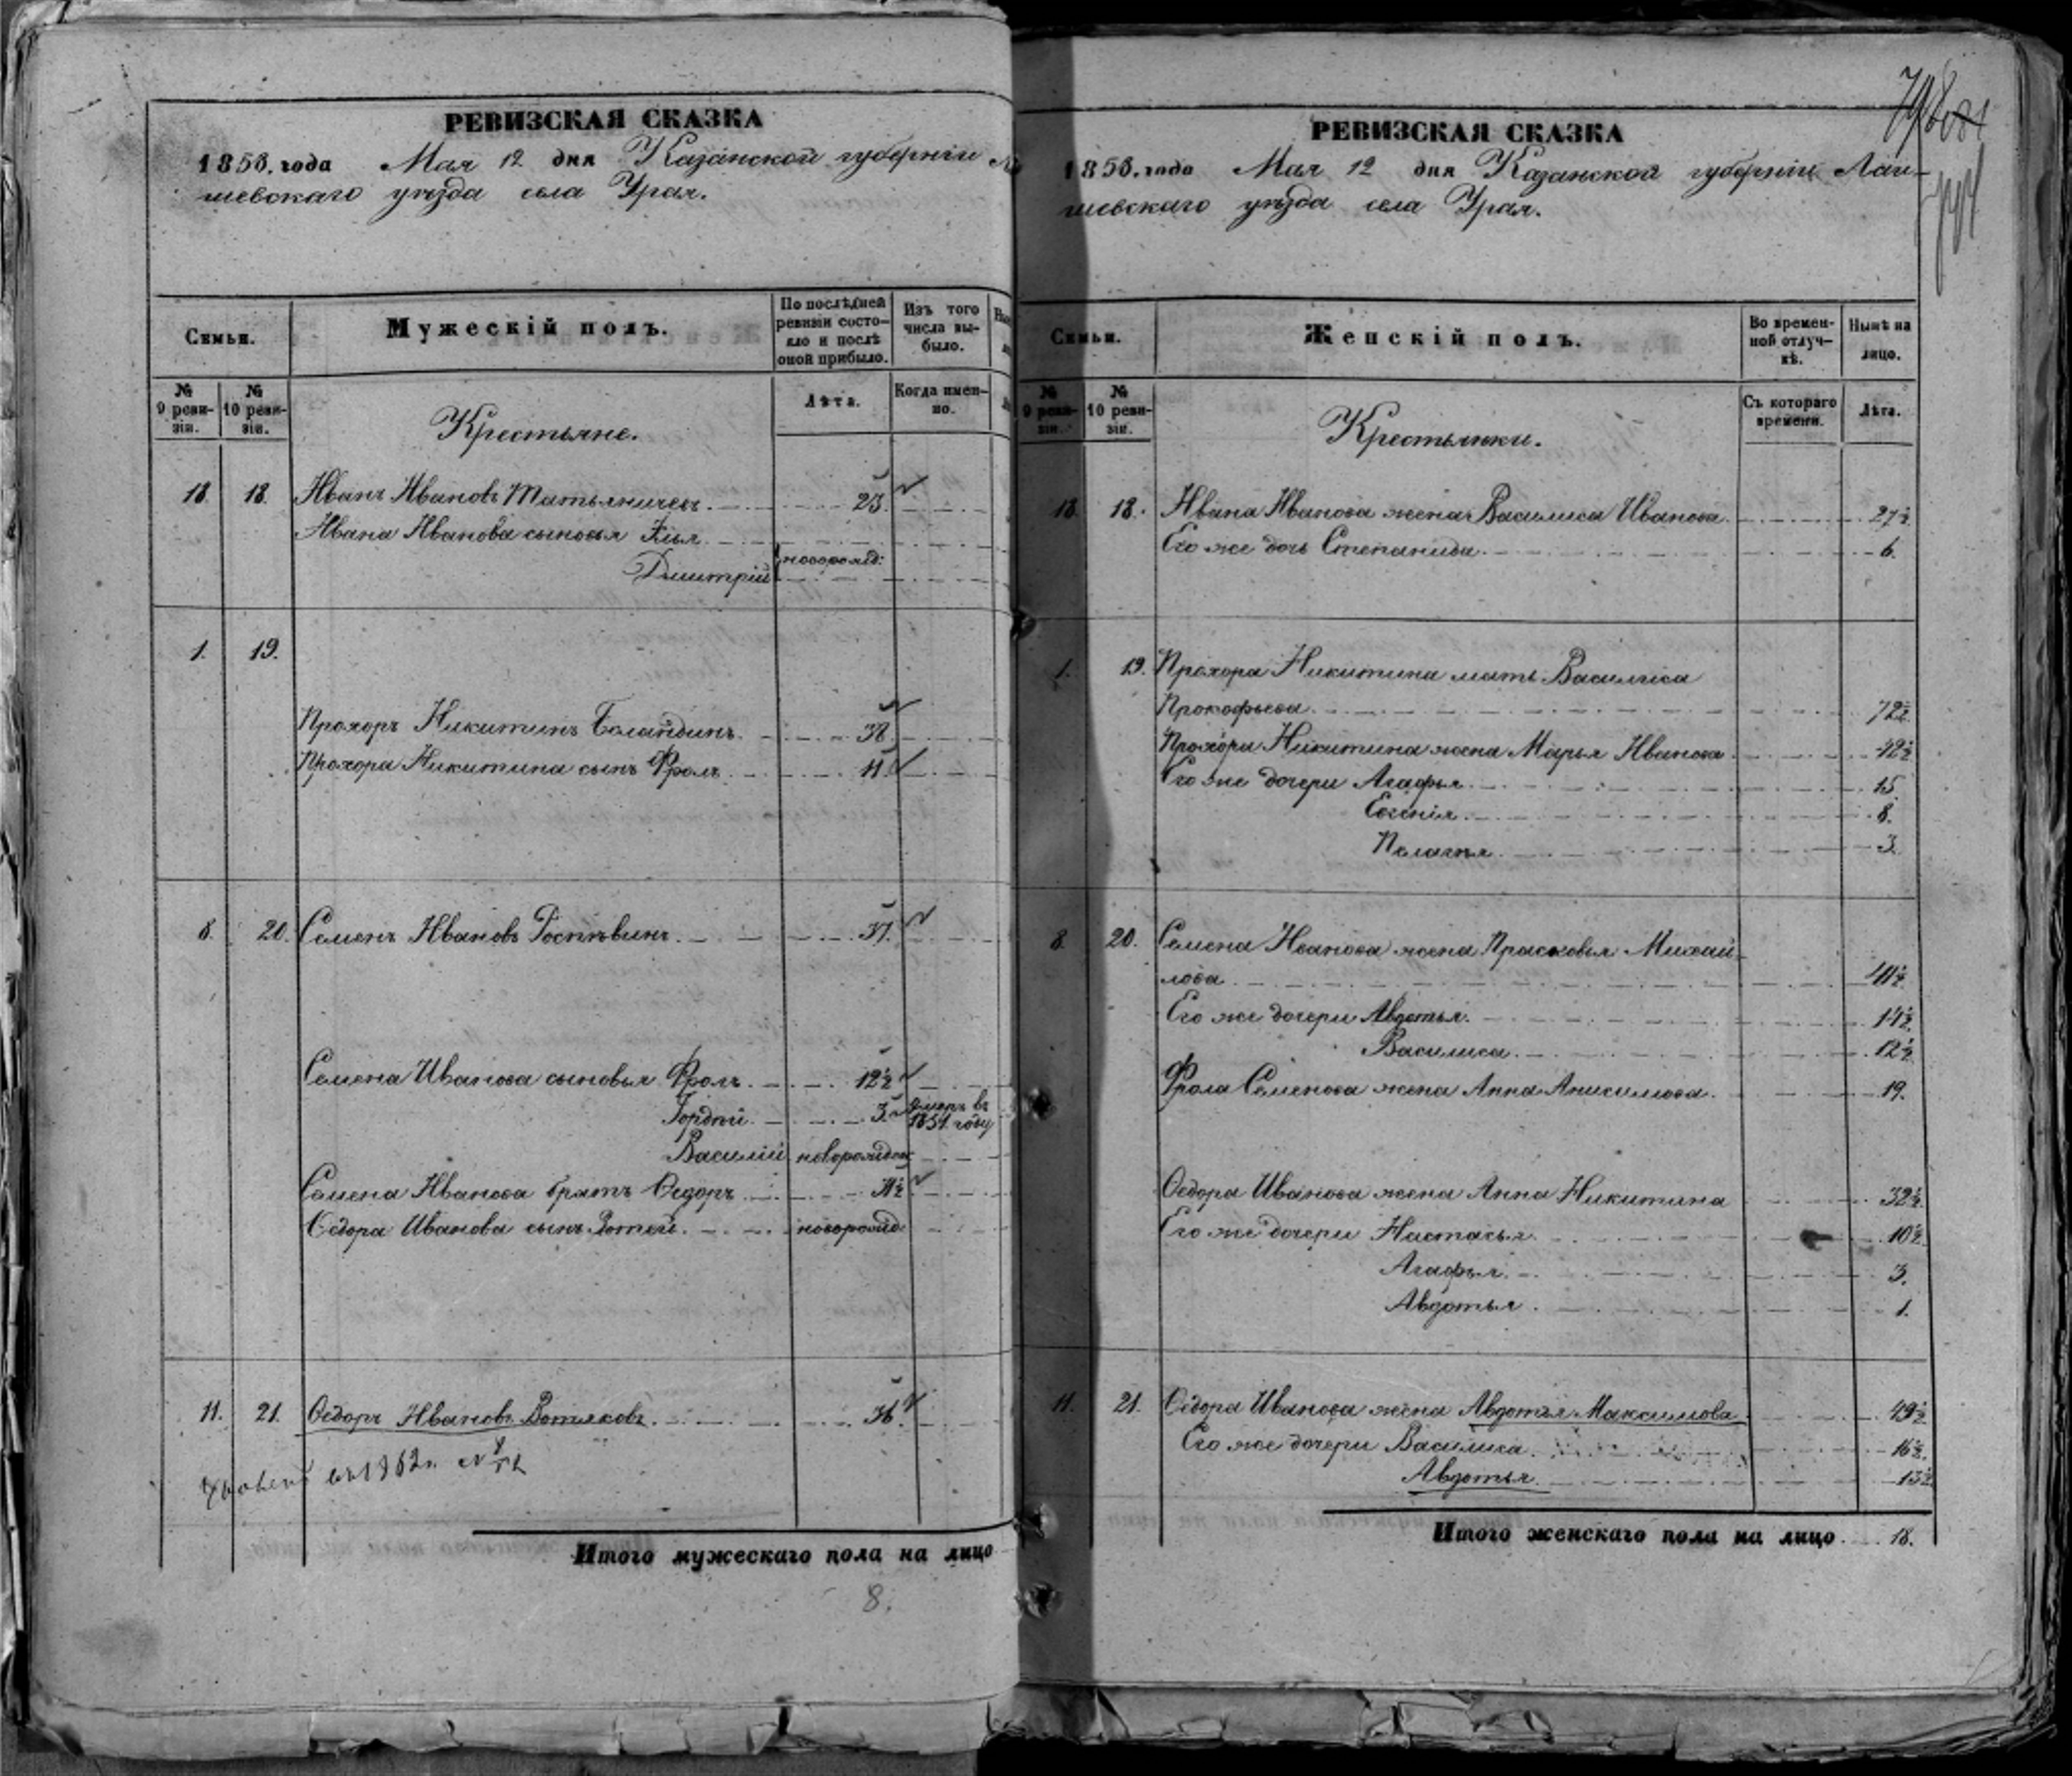 РЕВИЗСКАЯ СКАЗКА
1858. года Мая 12 дня Казанской губернiи Ла
шевскаго уѣзда села Урая.
Семьи.
Мужескiй полъ.
По послѣдней
ревизiи состо-
яло и послѣ
оной прибыло.
Изъ того
числа вы-
было.
№
9 реви-
зiи.
№
10 реви-
зiи.
Крестьяне.
Лѣта.
Когда имен-
но.
18. 18. Иванъ Ивановъ 23.
Ивана Иванова сыновья Илья
Дмитрiй новорожд:
1. 19.
Прохоръ Никитинъ Баландинъ. 38.
Прохора Никитина сынъ Фролъ 11.
8. 20. Семенъ Ивановъ 37.
Семена Иванова сыновья Фролъ. 12½
Гордѣй 3. умеръ въ
1851. году
Василiй новорожден
Семена Иванова братъ Ѳедоръ
Ѳедора Иванова сынъ Фотей. новорожд.
11. 21. Ѳедоръ Ивановъ Вотяковъ. 36.
въ 1862г. №
Итого мужескаго пола на лицо
8.
РЕВИЗСКАЯ СКАЗКА
1858. года Мая 12 дня Казанской губернiи Лаи-
шевскаго уѣзда села Урая.
Семьи.
Женскiй полъ.
Во времен-
ной отлуч-
кѣ.
Нынѣ на
лицо.
№
9 реви-
зiи.
№
10 реви-
зiи.
Крестьянки.
Съ котораго
времени.
Лѣта.
18. 18. Ивана Иванова жена Василиса Иванова. 27½
Его же дочь Степанида. 6.
1. 19. Прохора Никитина мать Василиса
Прокофьева. 72½
Прохора Никитина жена Марья Иванова 42½
Его же дочери Агафья 15.
Евгенiя 8.
Пелагья 3.
8. 20. Семена Иванова жена Прасковья Михай-
лова 41½
Его же дочери Авдотья. 14½
Василиса 12½
Фрола Семенова жена Анна Анисимова. 19.
Ѳедора Иванова жена Анна Никитина 32½
Его же дочери Настасья 10½
Агафья 3.
Авдотья. 1.
11. 21. Ѳедора Иванова жена Авдотья Максимова 49½
Его же дочери Василиса 16½
Авдотья 13½
Итого женскаго пола на лицо 18.